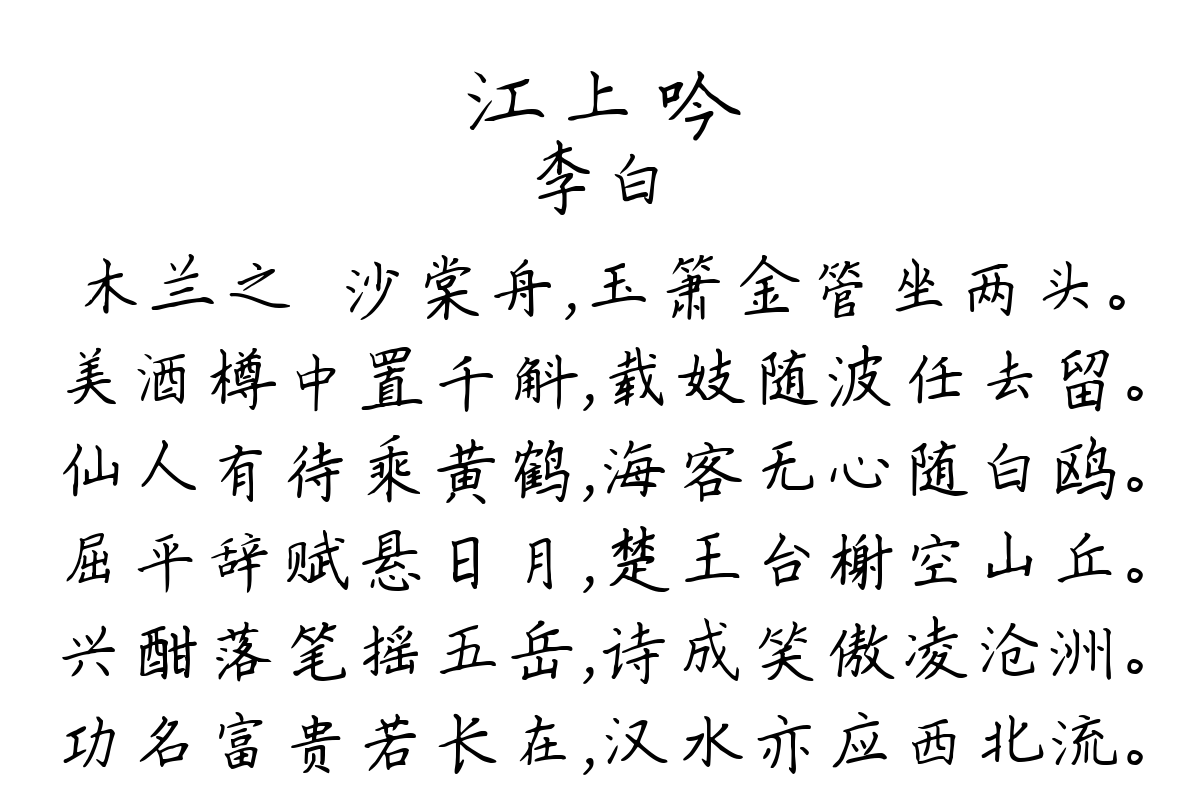 江上吟
李白
木兰之 沙棠舟,玉箫金管坐两头。
美酒樽中置千斛,载妓随波任去留。
仙人有待乘黄鹤,海客无心随白鸥。
屈平辞赋悬日月,楚王台榭空山丘。
兴酣落笔摇五岳,诗成笑傲凌沧洲。
功名富贵若长在,汉水亦应西北流。